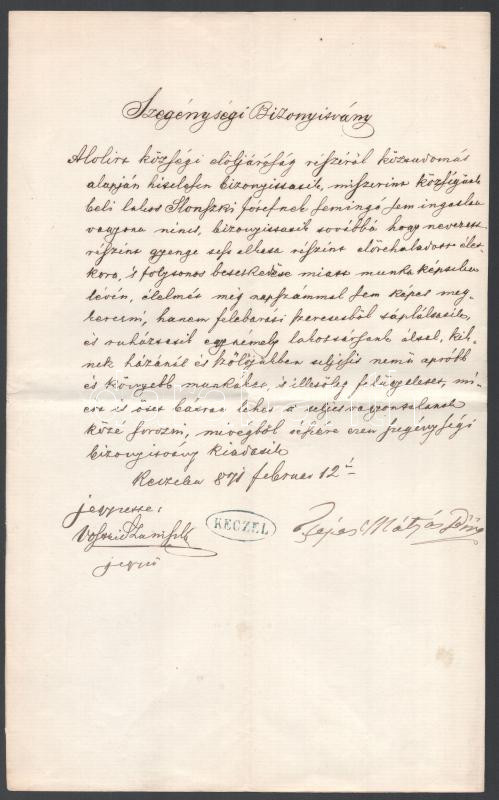 Szegénységi Bizonyitvány
Alolirt községi elöljáróság részéröl köztudomás
alapján hitelesen bizonyittatik, miszerint községünk
beli lakos Slonszki Józsefnek semingó sem ingatlan
vagyona nincs, bizonyittatik továbbá hogy nevezett
részint gyenge test részint elörehaladott élet
kora, s folytonos betegkedése miatt munka képtelen
lévén, élelmét még napszámmal sem képes meg
keresni, hanem felebaráti szeretetböl tápláltatik
és ruháztatik egy nemely lakostársunk által, kik-
nek házánál és szölöjükben teljesit nemü apróbb
és könnyebb munkákat, s illetöleg felügyeletet, mi-
ért is öset bátran lehet a teljes vagyontalanok
közé sorozni, mivégböl részére ezen szegénységi
bizonyitvány kiadatik
Keczelen 871 februar 12 én
jegyzette:
KECZEL
Mátyás
jegyzö